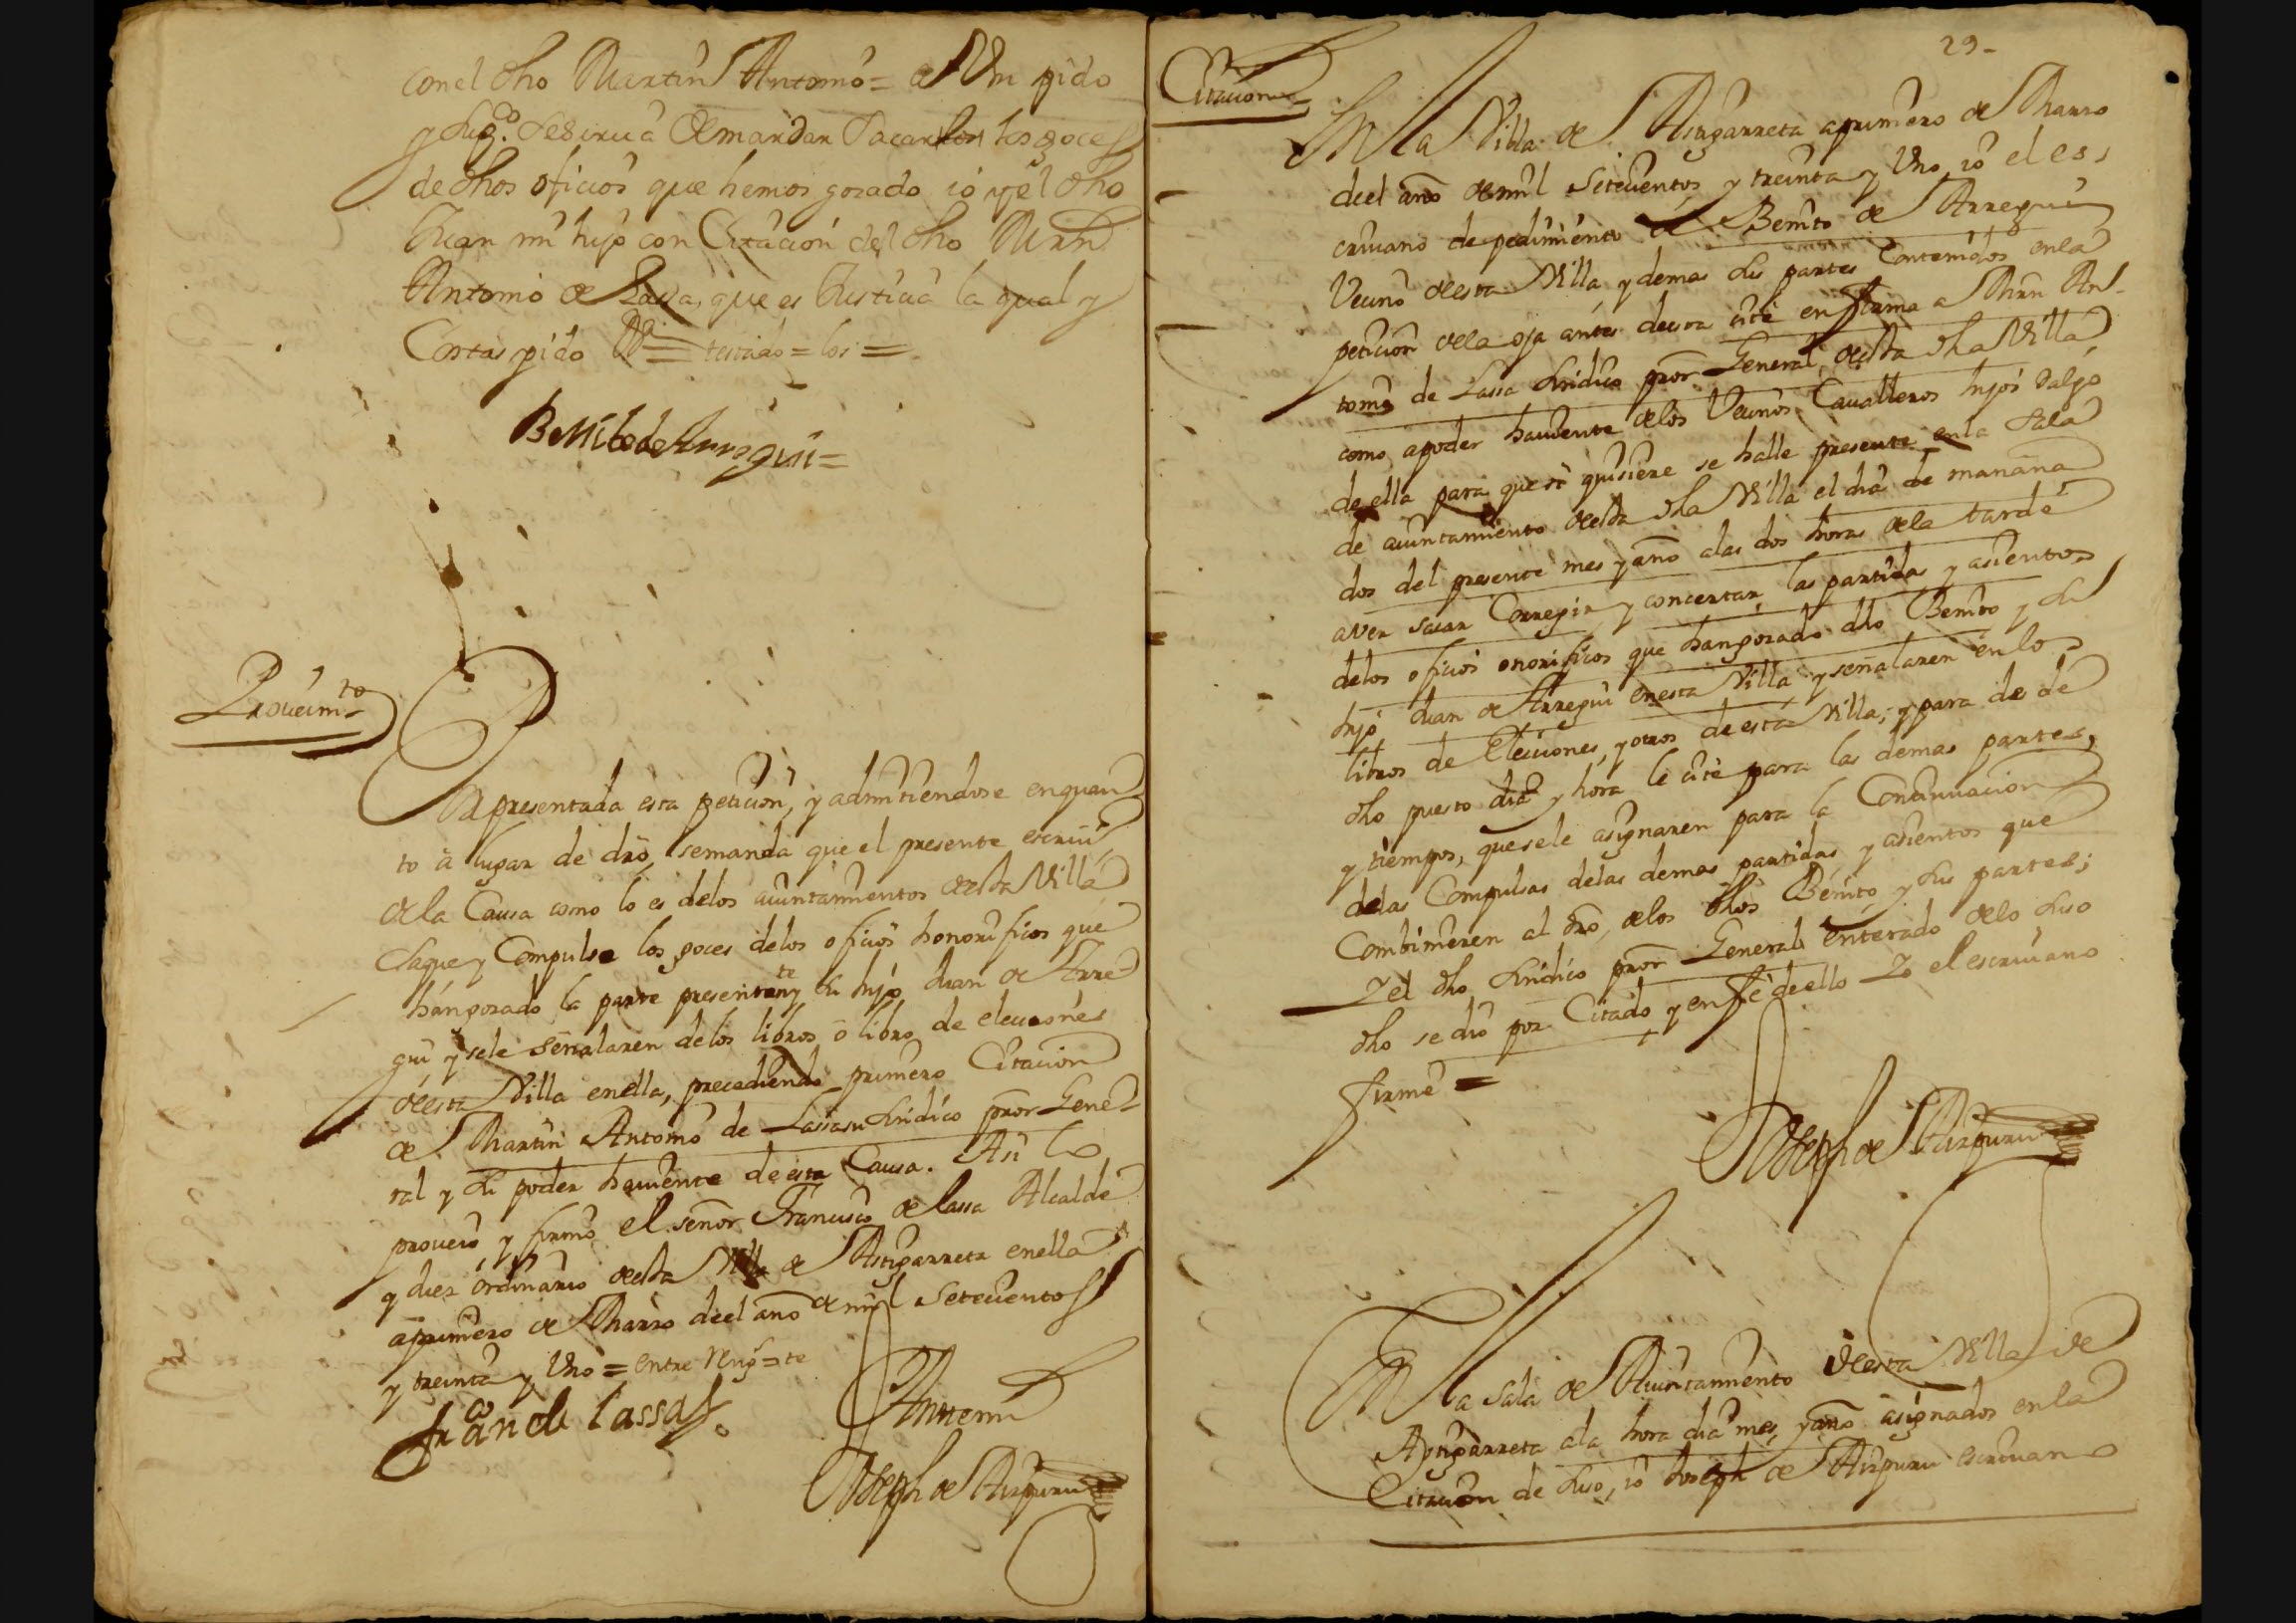 con el dho Martin Antonio = a Vm pido
y supp.co se sirua de mandar sacar los los goces
de dhos oficios que hemos gozado io y el dho
Juan mi hijo con Citacion del dho Mrn
Antonio de Lassa, que es Justicia la qual y
Costas pido Va = testado = los =
Benito de Arregui =
Proueim.to
Por presentada esta peticion, y admitiendose en quan
to à lugar de dro, se manda que el presente escriu.o
de la Causa como lo es de los aiuntamientos desta Villa
saque y Compulse los goces de los oficios honorificos que
han gozado la parte presentante y su hijo Juan de Arre
gui y se le señalaren de los libros ô libro de elecciones
de esta Villa en ella, precediendo primero Citacion
de Martin Antonio de Lassa su Sindico pror Gene
ral y su poder hauiente de esta Causa. Asi lo
proueio y firmo el señor Francisco de Lassa Alcalde
y Juez ordinario desta Villa de Astigarreta en ella
a primero de Marzo de el año de mil setecientos
y treinta y Vno = entre Reng.s = te
Fran.co de Lassa
Ante mi
Joseph de Aizpuru
29-
Citacion
En la Villa de Astigarreta a primero de Marzo
de el año de mil setecientos y treinta y Vno, io el es
criuano de pedimiento de Benito de Arregui
Vecino de esta Villa y demas sus partes Contenidos en la
peticion de la oja antes de esta cité en forma a Mrn An
tonio de Lassa Sindico pror General desta dha Villa
como apoder hauiente de los Vecinos Caualleros hijos dalgo
de ella para que si quisiere se halle presente en la sala
de aiuntamiento desta dha Villa el dia de mañana
dos del presente mes y año a las dos horas de la tarde
a ver sacar Corregir y concertar las partidas y asientos
de los oficios onorificos que han gozado dho Benito y su
hijo Juan de Arregui en esta Villa y señalaren en los
libros de Elecciones, y otros de esta Villa; y para de de
dho puesto dia y hora le cité para las demas partes,
y tiempos, que se le asignaren para la Continuacion
de las Compulsas de las demas partidas y asientos que
Combinieren al dro, de los dhos Benito y sus partes;
Y el dho Sindico pror General enterado de lo suso
dho se dio por Citado y en fé de ello Yo el escriuano
firmé =
Joseph de Aizpuru
En la sala de Aiuntamiento de esta Villa de
Astigarreta a la hora dia mes, y año asignados en la
Citacion de suso, io Joseph de Aizpuru escriuano